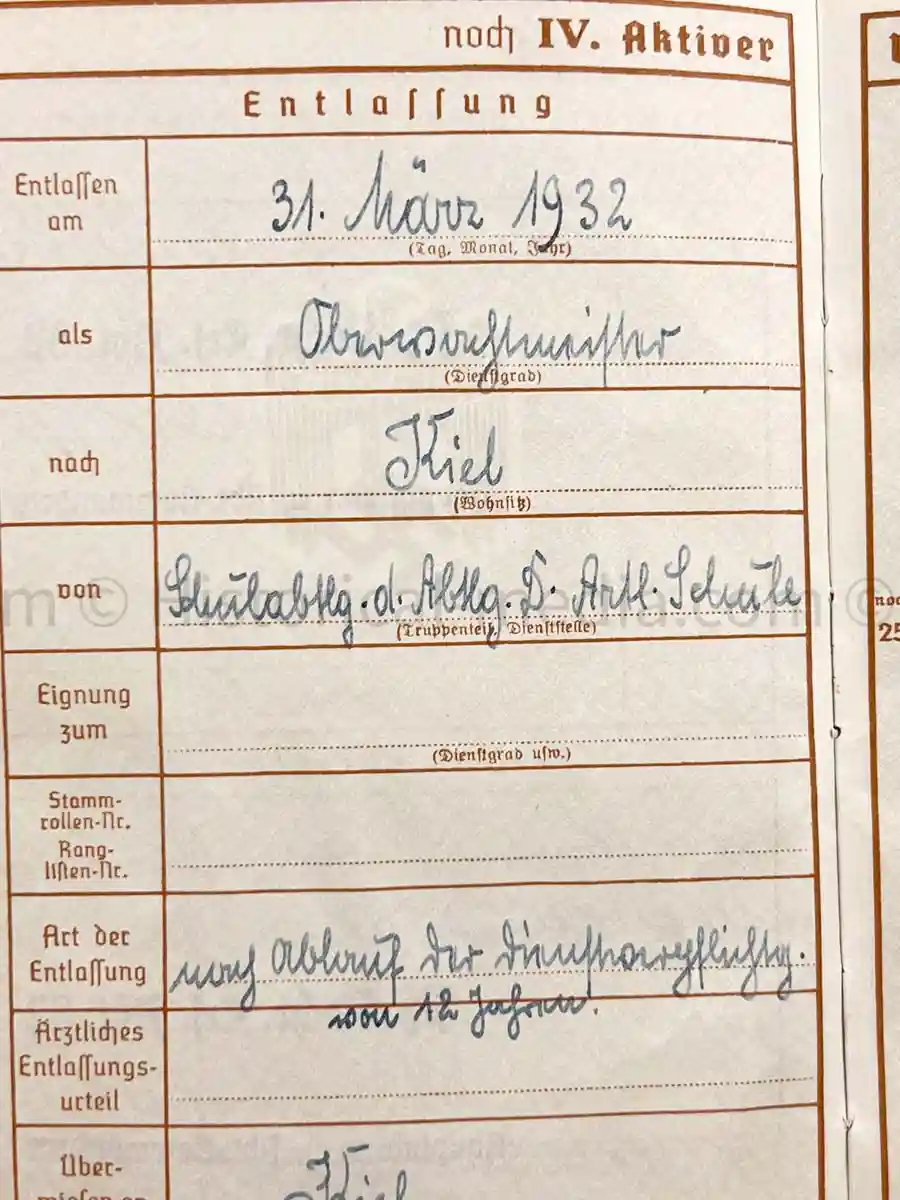 noch IV. Aktiver
Entlassung
Entlassen am
31. März 1932
(Tag, Monat, Jahr)
als
Oberwachtmeister
(Dienstgrad)
nach
Kiel
(Wohnsitz)
von
Schulabtlg. d. Abtlg. D. Artl. Schule
(Truppenteil, Dienststelle)
Eignung zum
(Dienstgrad usw.)
Stamm-
rollen-Nr.
Rang-
listen-Nr.
Art der
Entlassung
nach Ablauf der Dienstverpflichtg.
von 12 Jahren.
Ärztliches
Entlassungs-
urteil
Über-
Kiel
noch
25